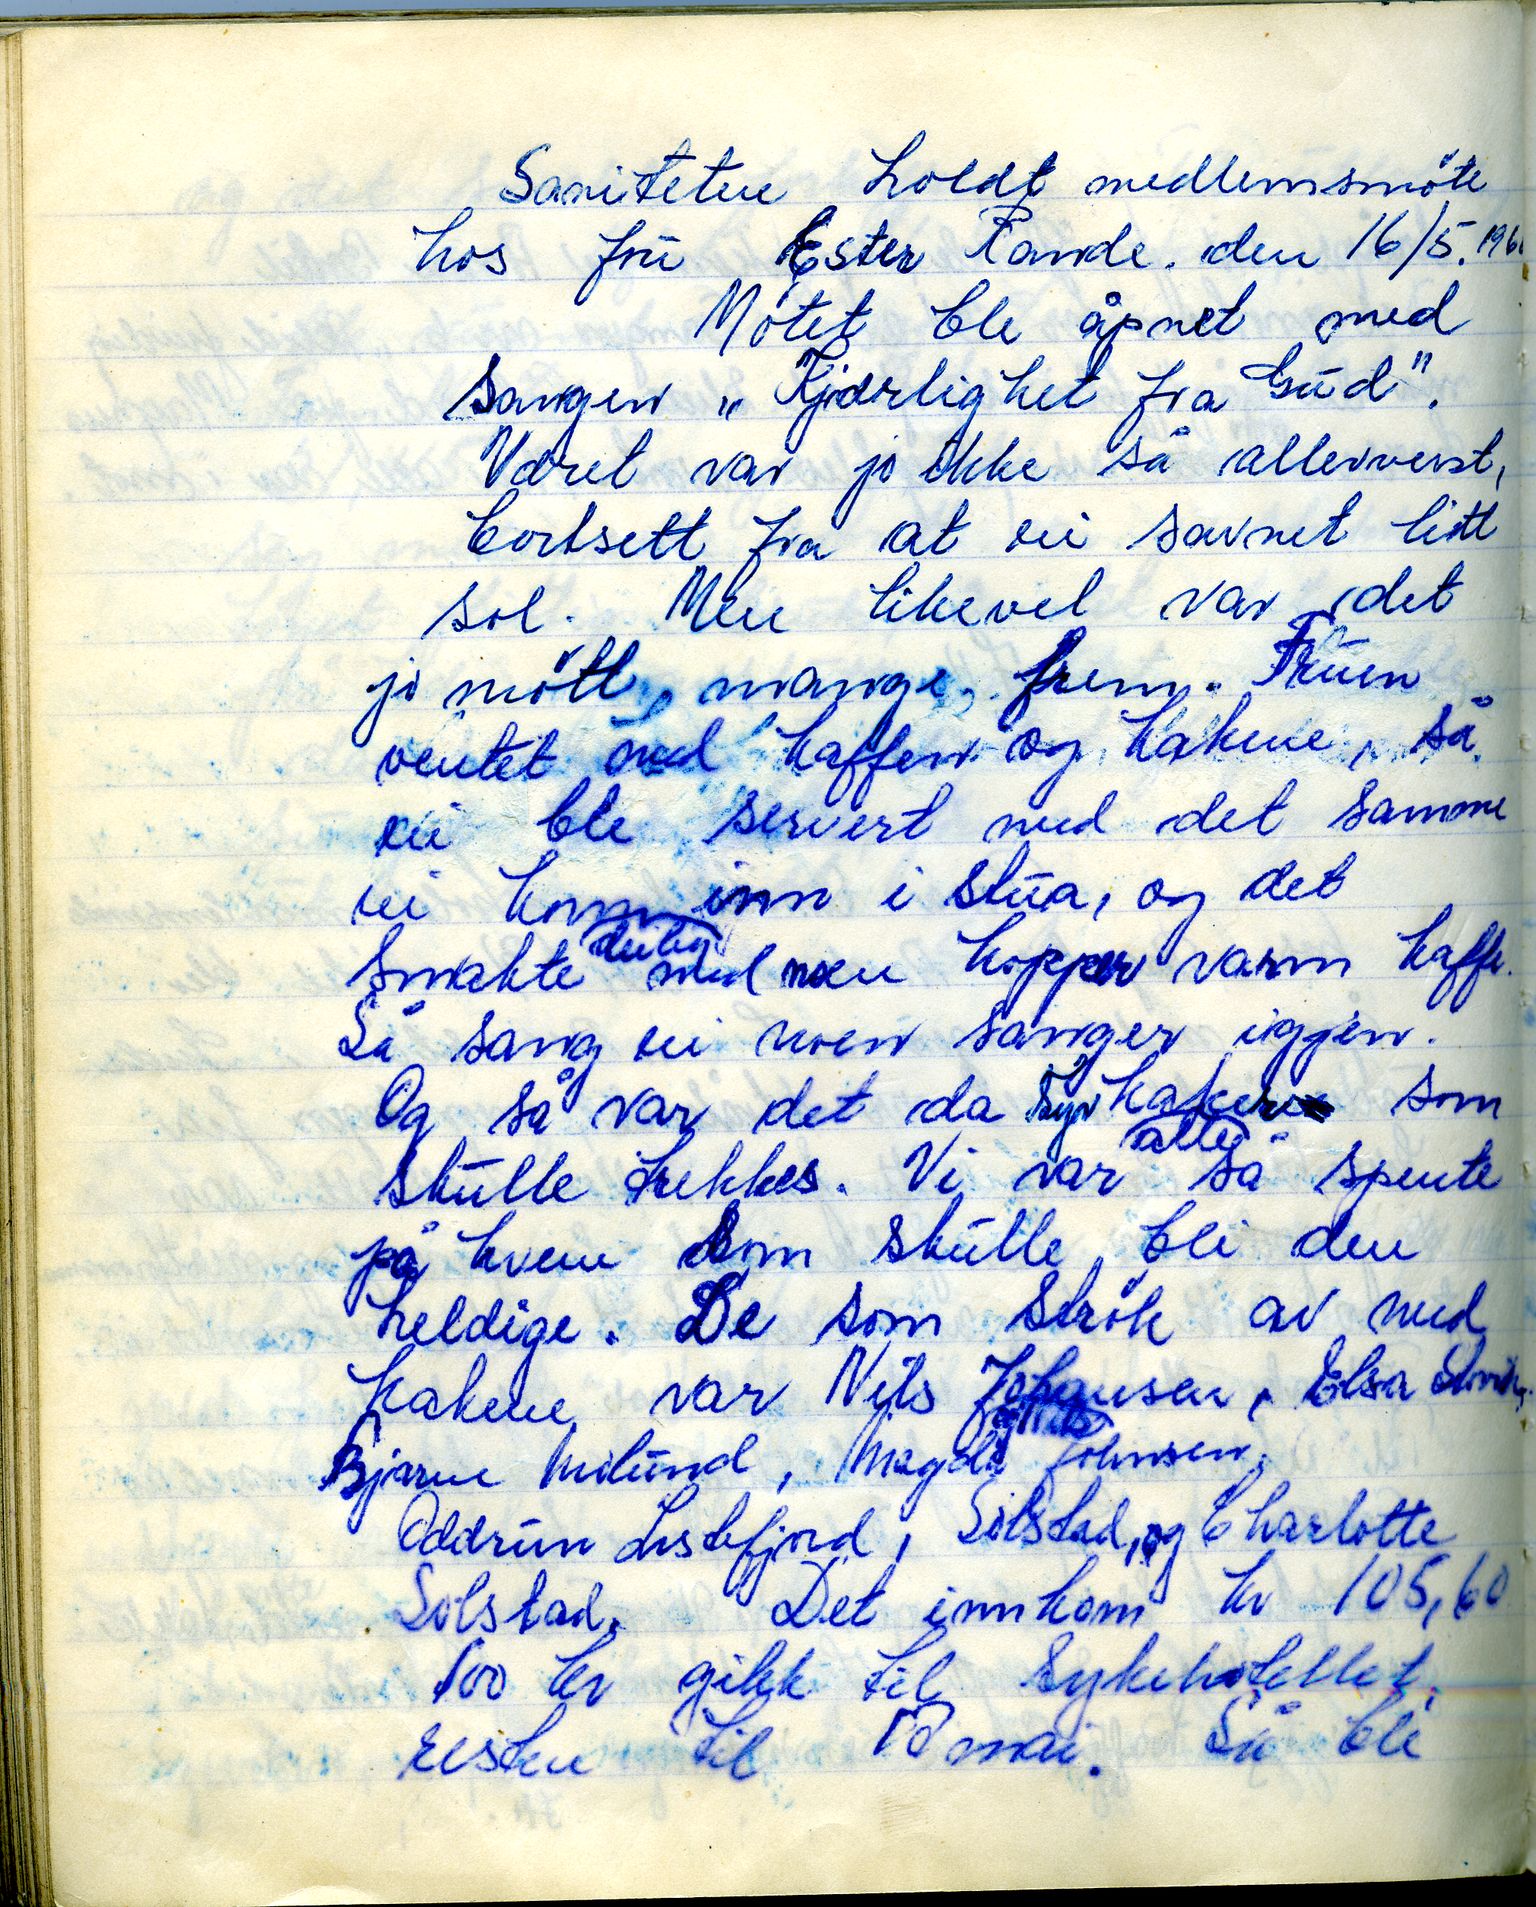 Saniteten holdt medlemsmöte
hos frü Ester Rande. den 16/5. 196
Mötet ble åpnet med
sangen „Kjærlighet fra Güd".
Været var jo ikke så allerverst,
bortsett fra at vi savnet litt
sol. Men likevel var det
jo mött mange frem. Früen
ventet med kaffen og kakene, så
vi ble servert med det samme
vi kom inn i stüa, og det
smakte deilig med noen kopper varm kaffe.
Så sang vi noen sanger iggjen.
Og så var det da kaker som
skülle trekkes. Vi var alle så spente
på hvem som skülle bli den
heldige. De som strök av med
kakene var Nils Johansen, Elsa
Bjarne Milünd, Magda Johnsen,
Oddrün Listefjord, Solstad, og Charlotte
Solstad. Det innkom kr 105,60
100 kr gikk til Sykehotellet,
resten til 17 mai. Så ble